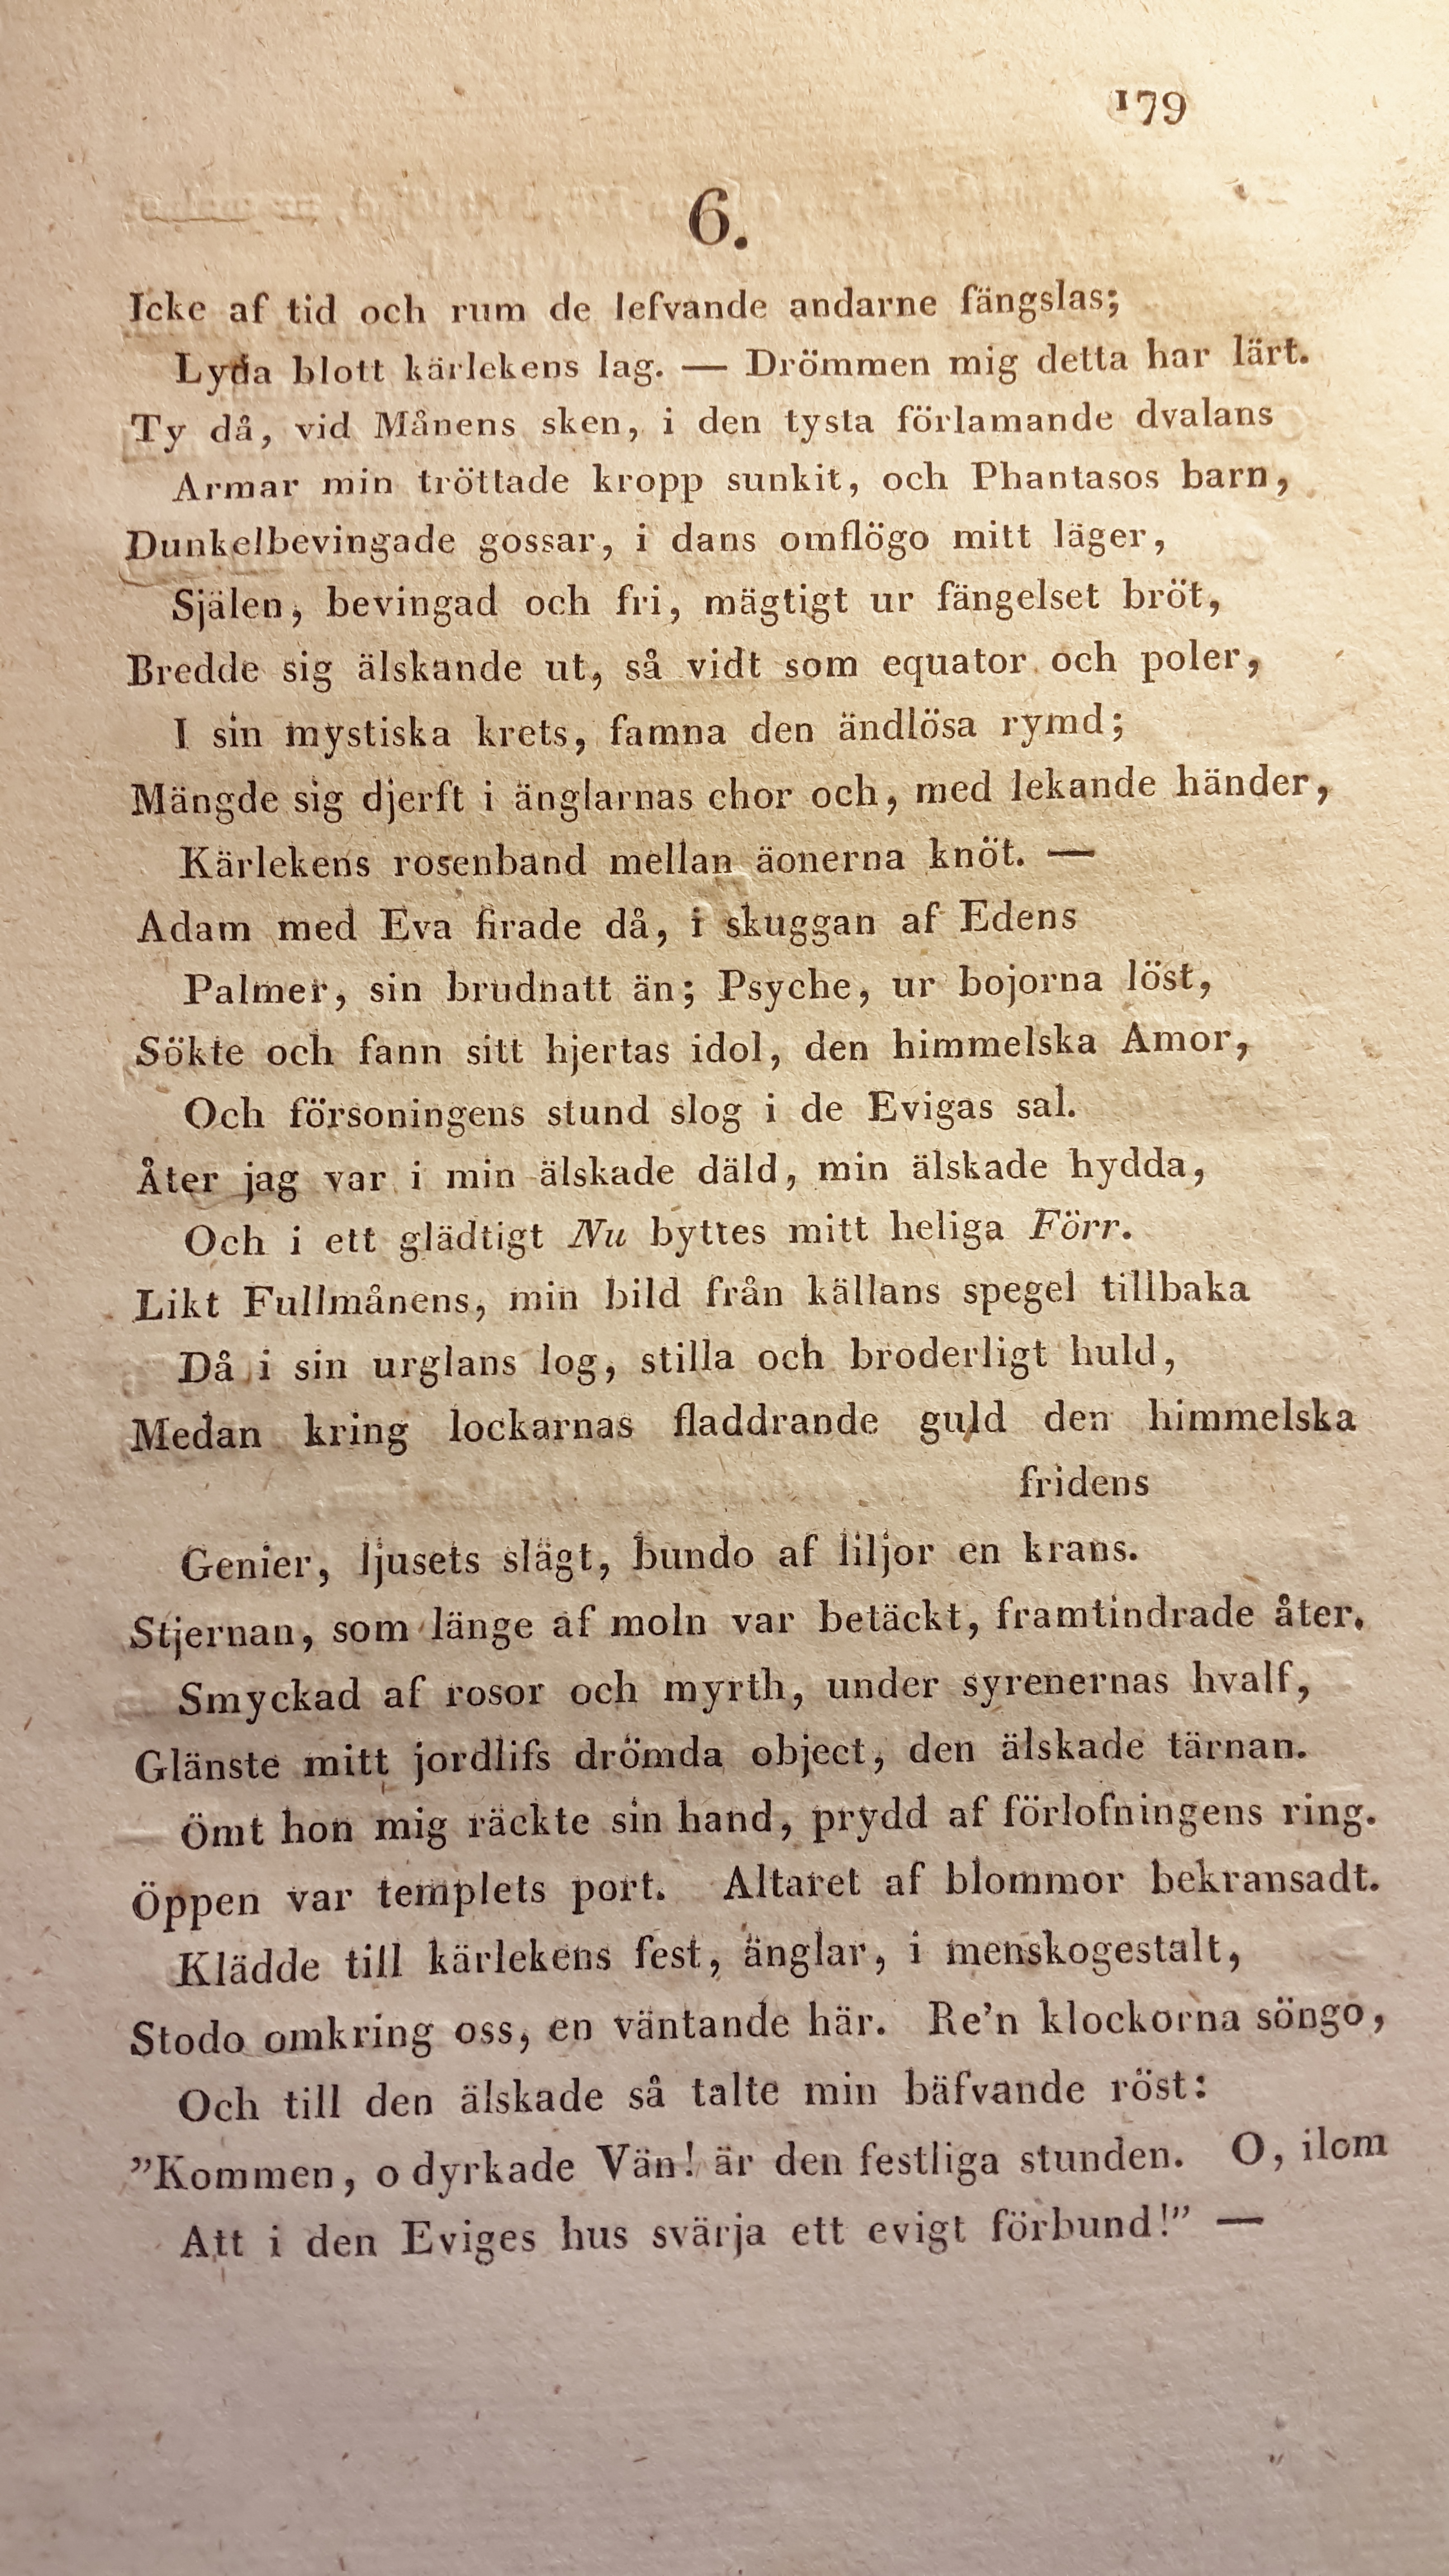 179
6.
Icke af tid och rum de lefvande andarne fängslas;
Lyda blott kärlekens lag. — Drömmen mig detta har lärt.
Ty då, vid Månens sken, i den tysta förlamande dvalans
Armar min tröttade kropp sunkit, och Phantasos barn,
Dunkelbevingade gossar, i dans omflögo mitt läger,
Själen, bevingad och fri, mägtigt ur fängelset bröt,
Bredde sig älskande ut, så vidt som equator och poler,
I sin mystiska krets, famna den ändlösa rymd;
Mängde sig djerft i änglarnas chor och, med lekande händer,
Kärlekens rosenband mellan äonerna knöt. —
Adam med Eva firade då, i skuggan af Edens
Palmer, sin brudnatt än; Psyche, ur bojorna löst,
Sökte och fann sitt hjertas idol, den himmelska Amor,
Och försoningens stund slog i de Evigas sal.
Åter jag var i min älskade däld, min älskade hydda,
Och i ett glädtigt Nu byttes mitt heliga Förr.
Likt Fullmånens, min bild från källans spegel tillbaka
Då i sin urglans log, stilla och broderligt huld,
Medan kring lockarnas fladdrande guld den himmelska
fridens
Genier, ljusets slägt, bundo af liljor en krans.
Stjernan, som länge af moln var betäckt, framtindrade åter.
Smyckad af rosor och myrth, under syrenernas hvalf,
Glänste mitt jordlifs drömda object, den älskade tärnan.
Ömt hon mig räckte sin hand, prydd af förlofningens ring.
Öppen var templets port. Altaret af blommor bekransadt.
Klädde till kärlekens fest, änglar, i menskogestalt,
Stodo omkring oss, en väntande här. Re'n klockorna söngo,
Och till den älskade så talte min bäfvande röst:
”Kommen, o dyrkade Vän! är den festliga stunden. O, ilom
Att i den Eviges hus svärja ett evigt förbund!” —